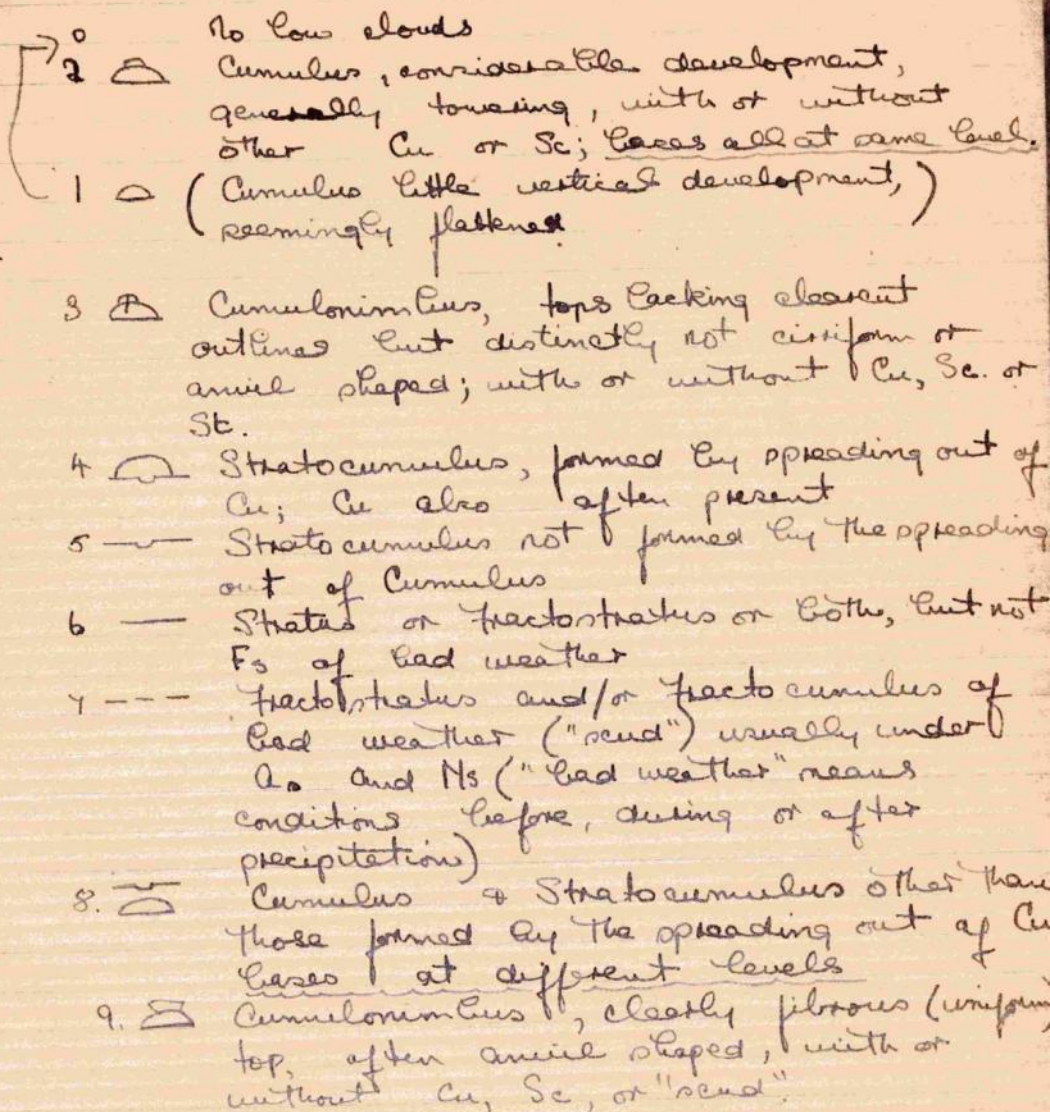 0 No low clouds
2 Cumulus, considerable development,
generally towering, with or without
other Cu or Sc; bases all at same level.
1 (Cumulus little vertical development,)
seemingly flattened
3 Cumulonimbus, tops lacking clearcut
outlines but distinctly not cirriform or
anvil shaped; with or without Cu, Sc. or
St.
4 Stratocumulus, formed by spreading out of
Cu; Cu also often present
5 Stratocumulus not formed by the spreading
out of Cumulus
6 Stratus or Fractostratus or both, but not
Fs of bad weather
7 Fractostratus and/or Fractocumulus of
bad weather ("scud") usually under
As and Ns ("bad weather" means
conditions before, during or after
precipitation)
8. Cumulus & Stratocumulus other than
those formed by the spreading out of Cu
bases at different levels
9. Cumulonimbus, clearly fibrous
top, often anvil shaped, with or
without Cu, Sc, or "scud".